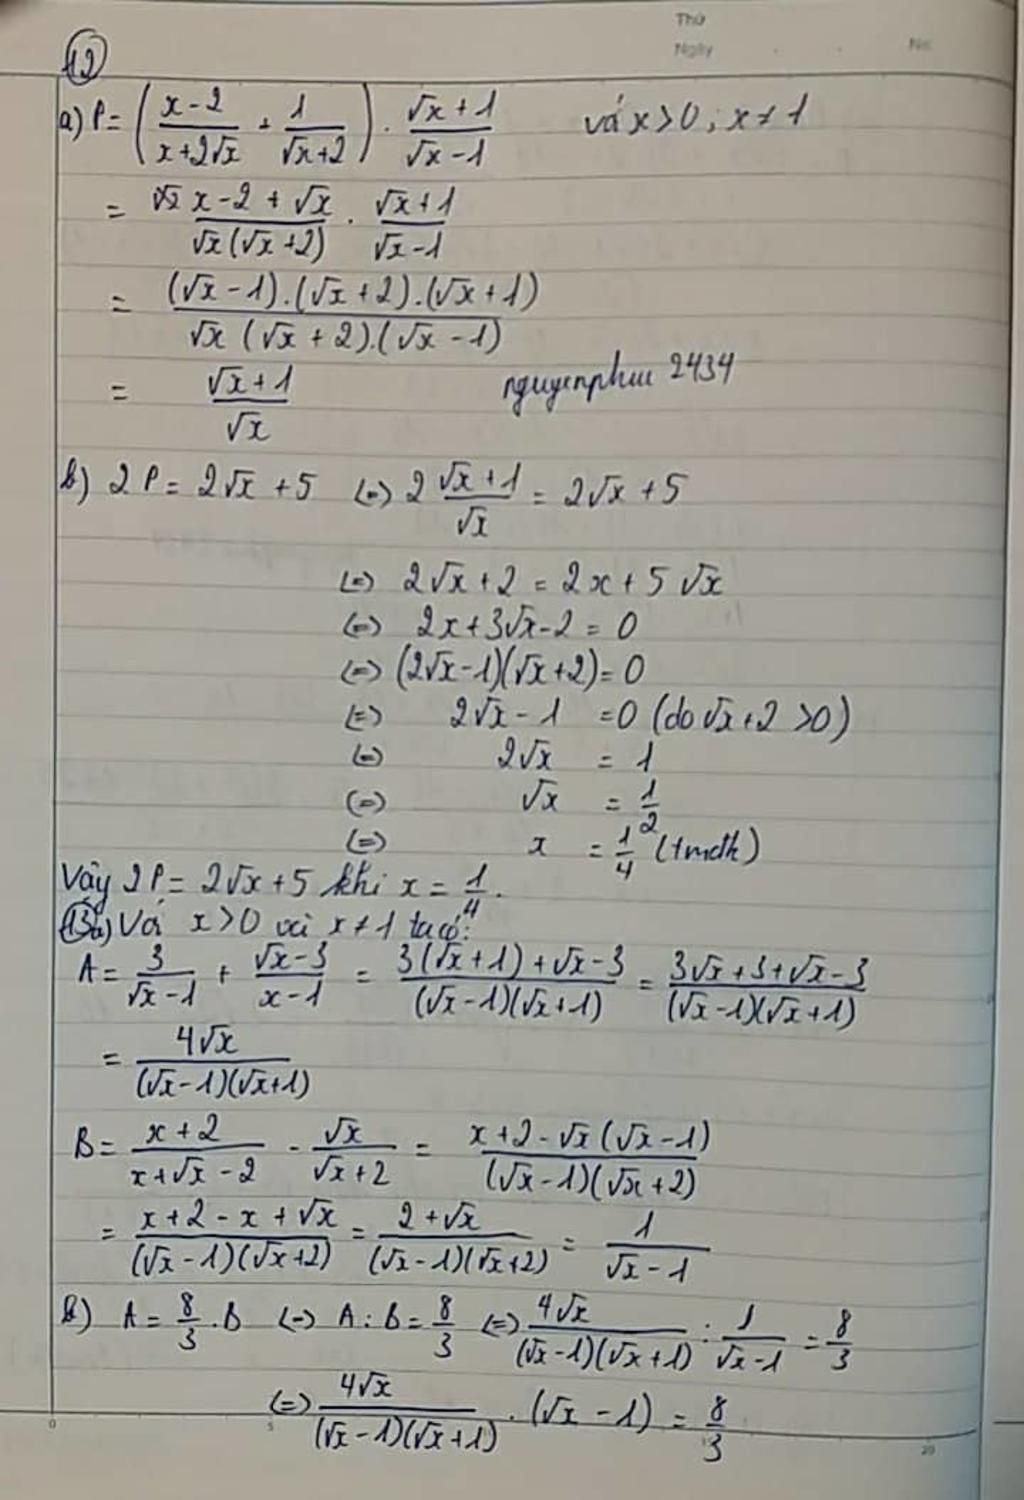 Thứ
Ngày . . No.
12
a) P = (x-2/x+2√x + 1/√x+2) . √x+1/√x-1 với x>0; x≠1
= x-2+√x/√x(√x+2) . √x+1/√x-1
= (√x-1).(√x+2).(√x+1)/√x(√x+2).(√x-1)
= √x+1/√x nguyenphuc2434
b) 2P = 2√x+5 (=) 2 √x+1/√x = 2√x+5
(=) 2√x+2 = 2x+5√x
(=) 2x+3√x-2 = 0
(=) (2√x-1)(√x+2) = 0
(=) 2√x-1 = 0 (do √x+2 >0)
(=) 2√x = 1
(=) √x = 1/2
(=) x = 1/4 (tmđk)
Vậy 2P = 2√x+5 khi x = 1/4.
13 a) Với x>0 và x≠1 ta có:
A = 3/√x-1 + √x-3/x-1 = 3(√x+1)+√x-3/(√x-1)(√x+1) = 3√x+3+√x-3/(√x-1)(√x+1)
= 4√x/(√x-1)(√x+1)
B = x+2/x+√x-2 - √x/√x+2 = x+2-√x(√x-1)/(√x-1)(√x+2)
= x+2-x+√x/(√x-1)(√x+2) = 2+√x/(√x-1)(√x+2) = 1/√x-1
b) A = 8/3 . B (=) A : B = 8/3 (=) 4√x/(√x-1)(√x+1) : 1/√x-1 = 8/3
(=) 4√x/(√x-1)(√x+1) . (√x-1) = 8/3
0 5 20